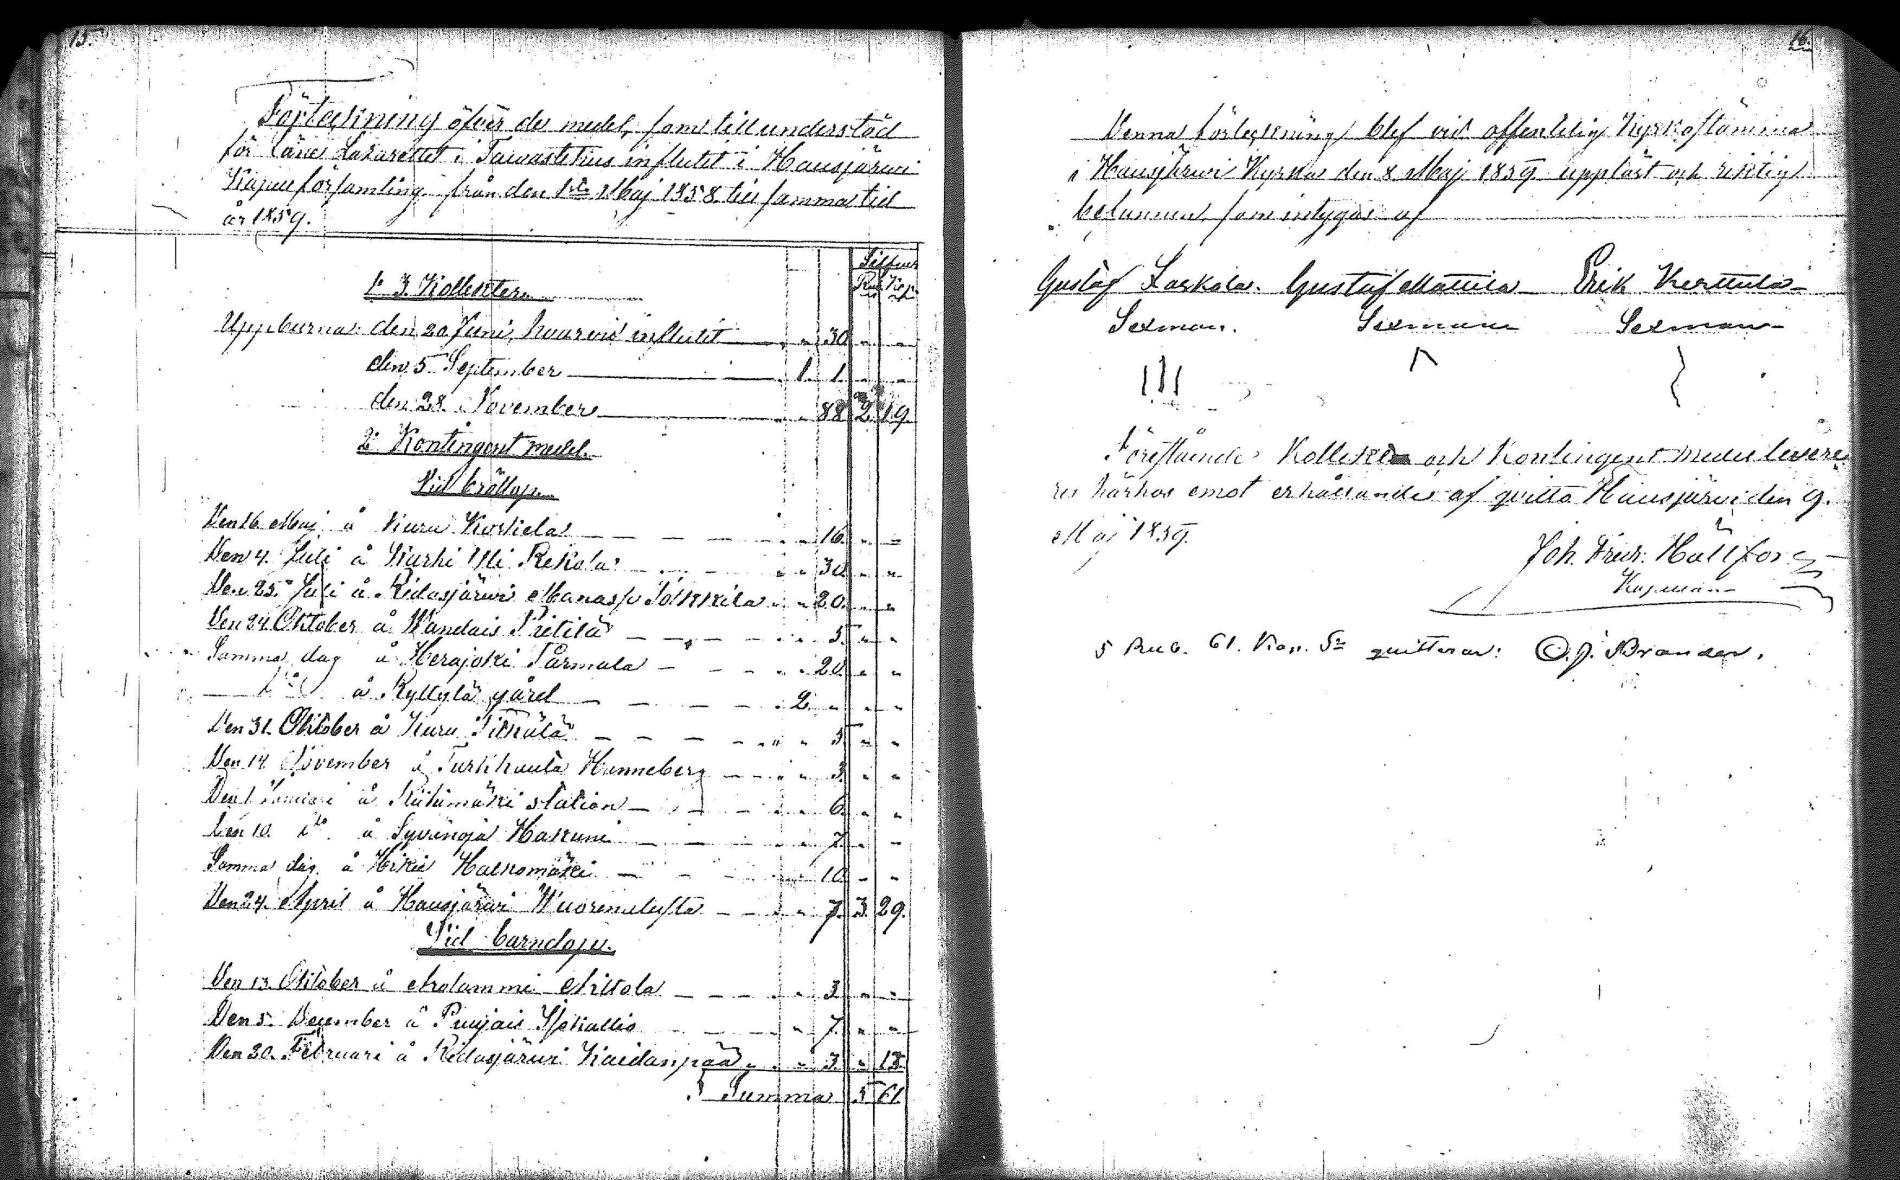 15.
Förteckning öfver de medel, som till understöd
för Läne Lazarettet i Tawastehus influtit i Hausjärwi
Kapellförsamling från den 1sta Maj 1858 till samma tid
år 1859.
Silfver
Rub. Kop.
1o 3 Kollekter.
Uppburna den 20 Juni, hvarvid influtit 30
den 5 September 1. 1.
den 28 November 88 2 19.
2o Kontingent medel.
Vid bröllop.
Den 16 Maj å Kuru Koskela 16.
Den 4. Juli å Kurki Ylli Rekola 30
Den 25. Juli å Ridasjärwi 20.
Den 24 Oktober å Wandais Pietilä 5
Samma dag å Herajoki Tårmala 20
å Ryttylä gård 2
Den 31. Oktober å Kuru Pitkälä 5
Den 14 November å Turkhauta Hanneberg 3
Den 1 Januari å Riihimäki station 6
Den 10. do å Syvänoja Hakuni 7
Samma dag å Hikiä Halkomäki 10
Den 24. April å Hausjärwi Wuorenlusta 7. 3. 29.
Vid barndop.
Den 13. Oktober å Molommi Mikola 3
Den 5. December å Puujais Isokallio 7
Den 20. Februari å Ridasjärwi Kaidanpää 3 13.
Summa 5 61.
16.
Denna förteckning blef vid offentelig Kyrkostämma
i Hausjärwi Kyrka den 8 Maj 1859 uppläst och riktig
befunnen, som intygas af
Gustaf Laskala. Gustaf Mattila Erik Kerttula
Sexman. Sexman Sexman
Förestående Kollekt och Kontingent medel levere
res härhos emot erhållande af qvitto Hausjärwi den 9.
Maj 1859.
Joh. Fredr. Hällfors
Kapellan
5 Rub. 61. Kop. Sr quitterar: C. J. Brander.